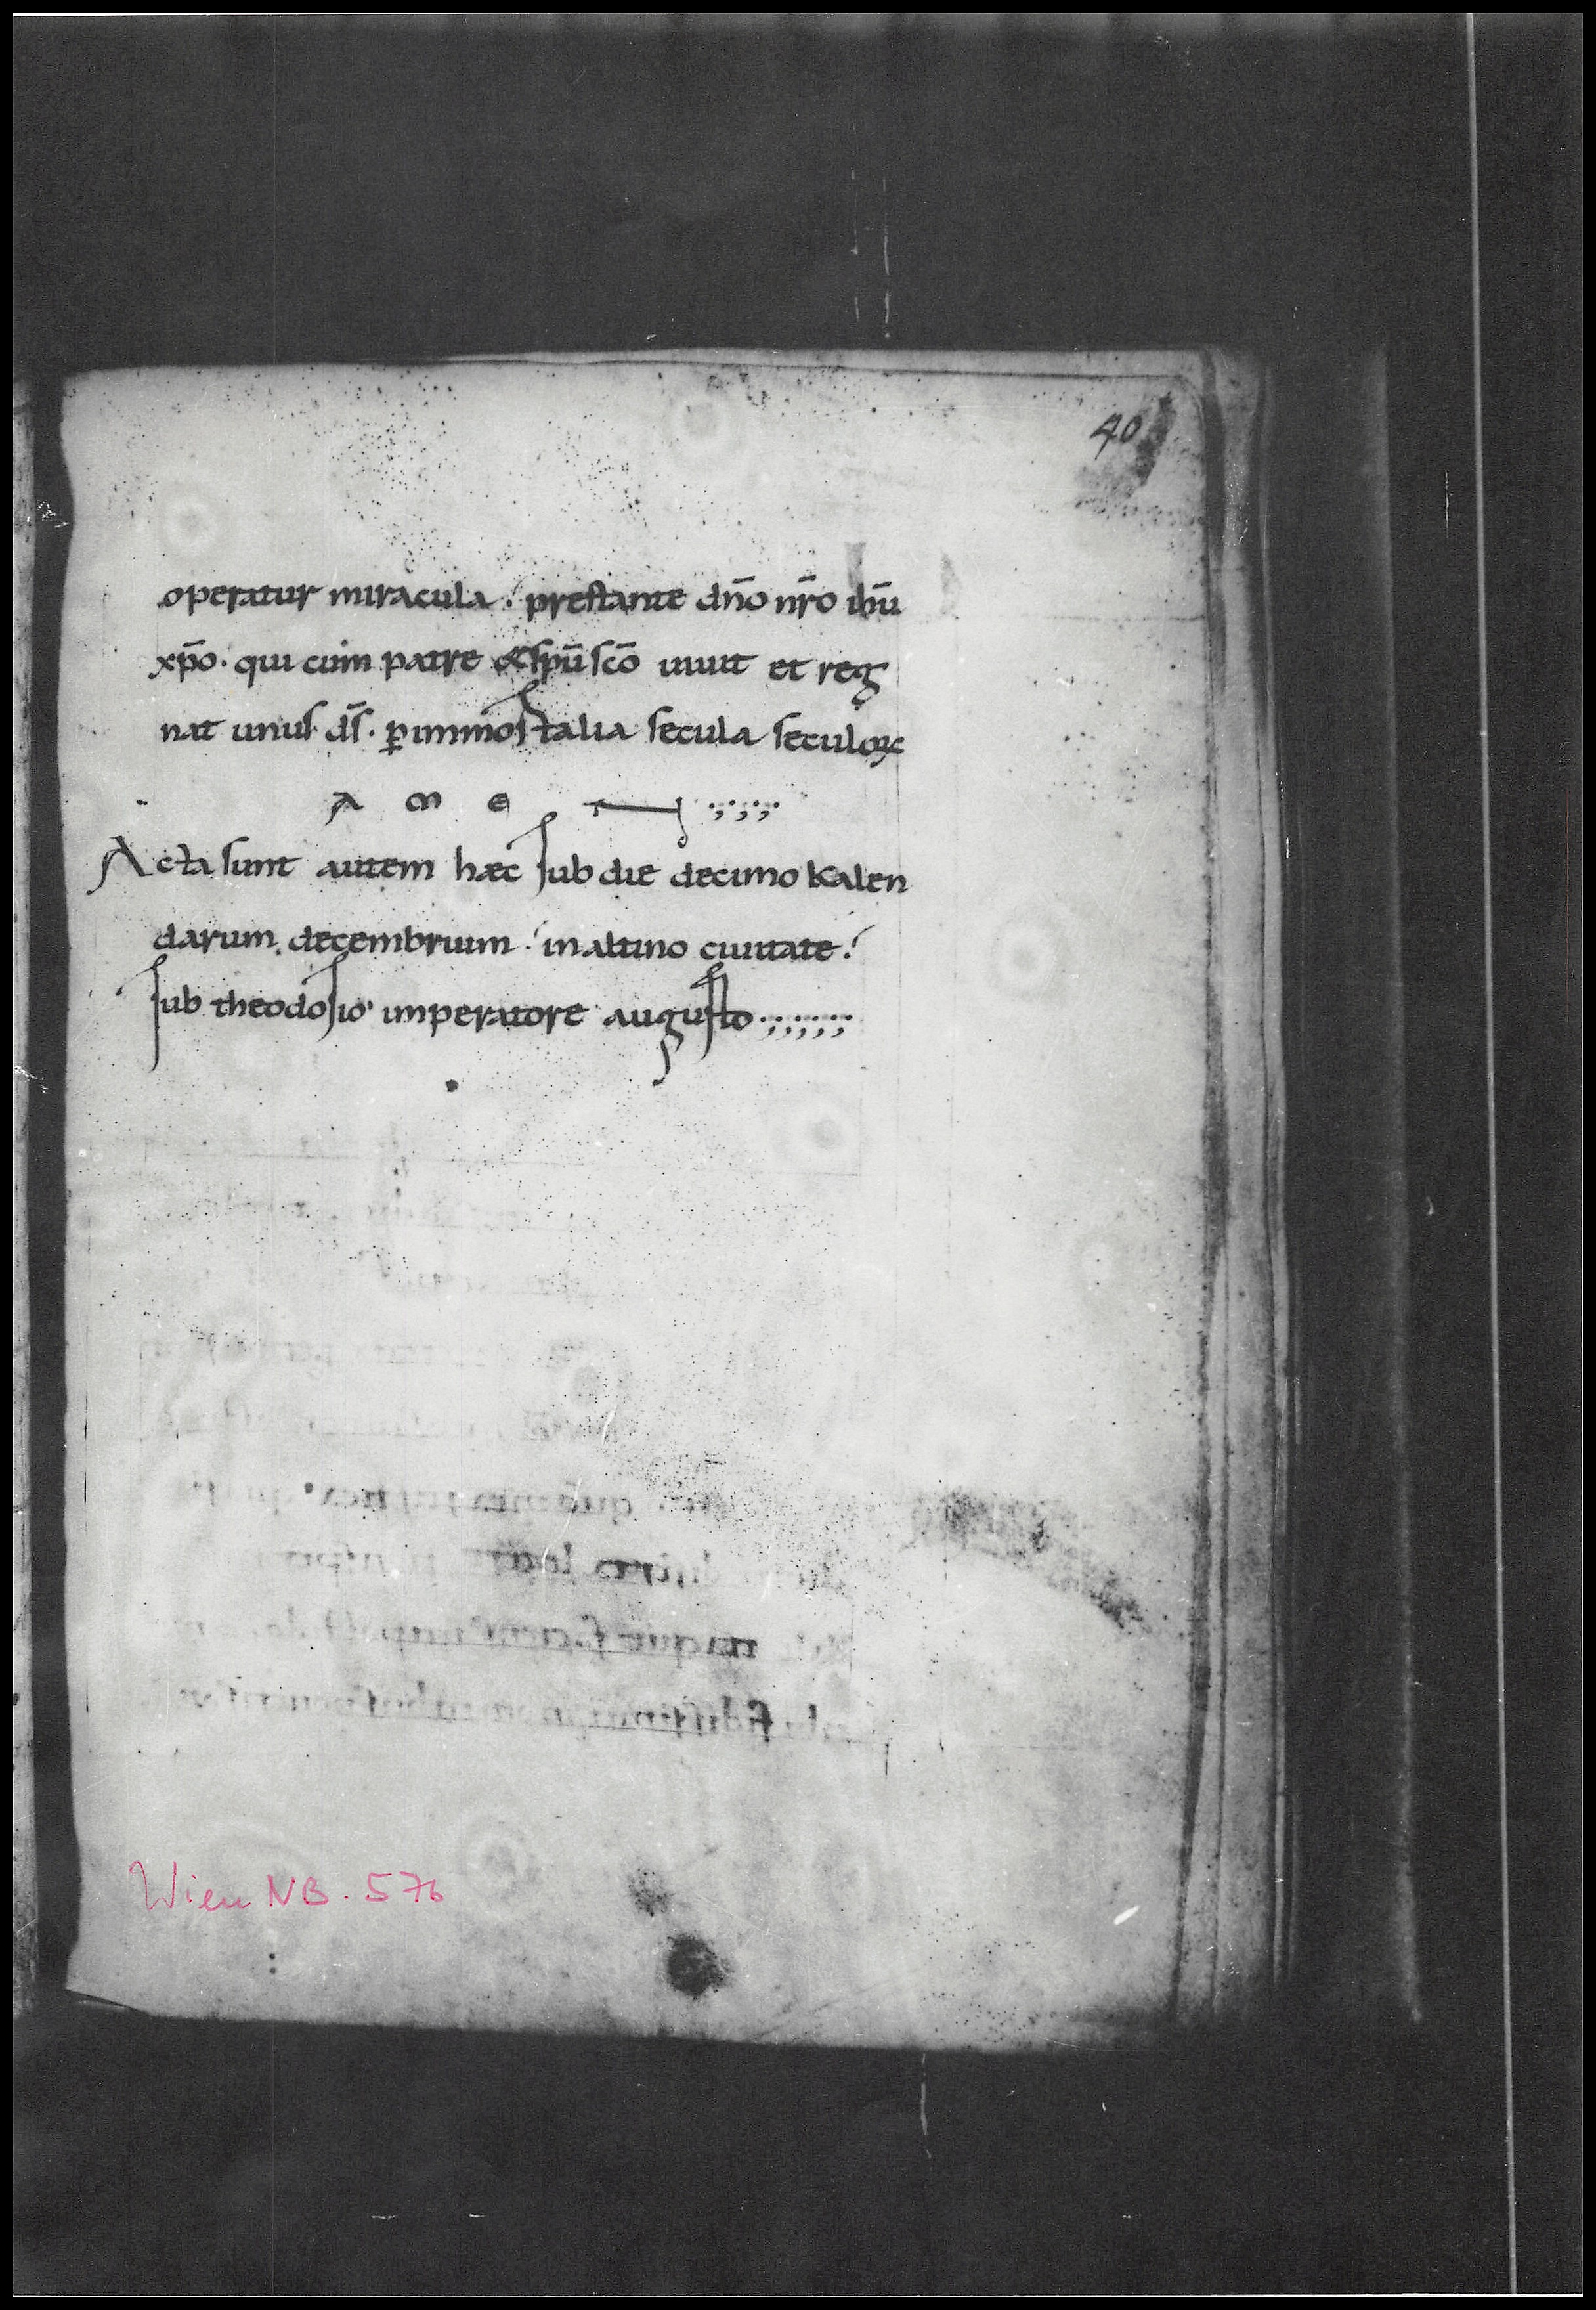 40
operatur miracula. prestante dn̄o nr̄o ihū
xp̄o. qui cum patre & spū scō uiuit et reg
nat unus ds̄. ꝑ immortalia secula seculoꝝ
A M E N
Acta sunt autem hæc sub die decimo kalen
darum decembrium. in altino ciuitate.
sub theodosio imperatore augusto
Wien NB. 576